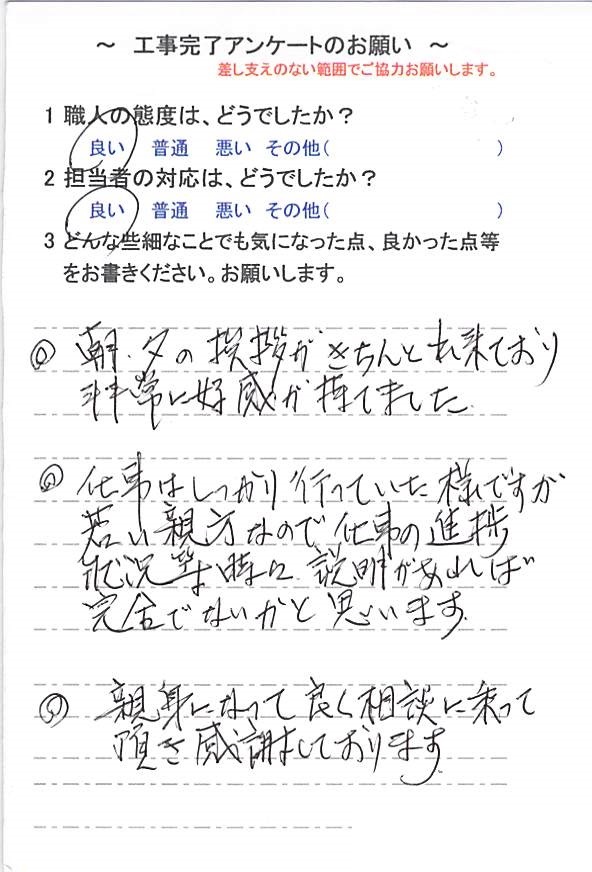 ～ 工事完了アンケートのお願い ～
差し支えのない範囲でご協力お願いします。
1 職人の態度は、どうでしたか？
良い 普通 悪い その他( )
2 担当者の対応は、どうでしたか？
良い 普通 悪い その他( )
3 どんな些細なことでも気になった点、良かった点等
をお書きください。お願いします。
朝・夕の挨拶がきちんと出来ており
非常に好感が持てました
仕事はしっかり行っていた様ですが
若い親方なので仕事の進捗
状況等は時に説明があれば
完全でないかと思います
親身になって良く相談に乗って
頂き感謝しております